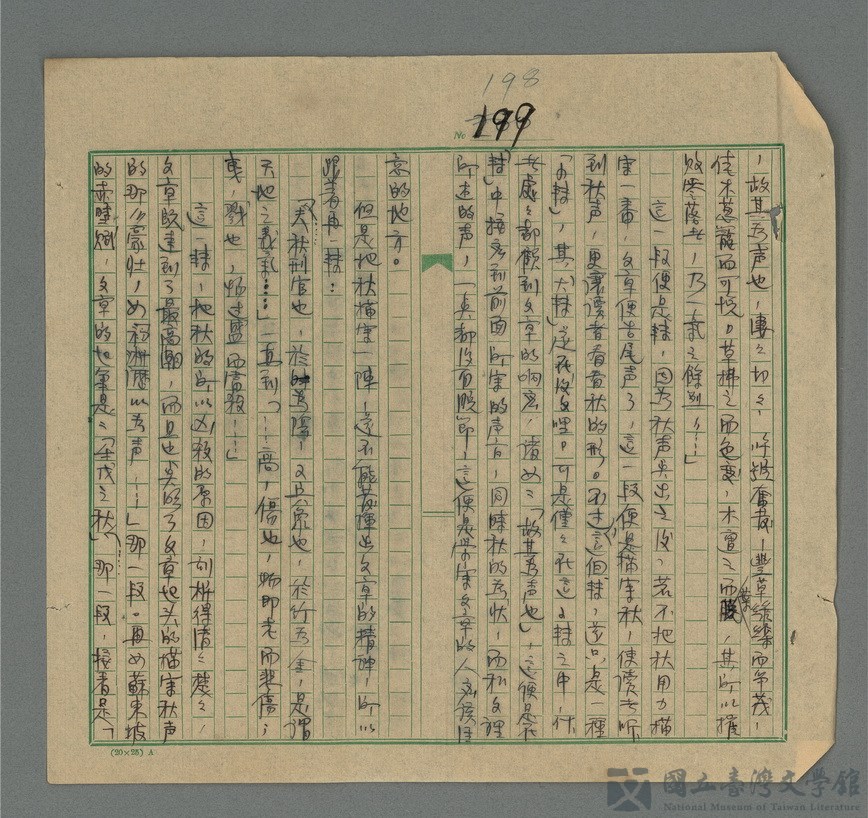 198
No. 199
，故其為聲也，淒々切々，呼號奮發，豐草綠縟而爭茂，
佳木葱蘢而可悅。草拂之而色變，木遭之而葉脫，其所以摧
敗零落者，乃一氣之餘烈……」
這一段便是轉，因為秋声點出之後，若不把秋用力描
寫一番，文章便也尾声了，這一段便是描寫秋，使讀者听
到秋声，更讓讀者看看秋的形。不過這個轉，還只是一種
「小轉」，其「大轉」還在後文哩。可是僅々在這小轉之中，作
者處々都顧到文章的响离，諸如：「故其為声也」，這便是在
「轉」中描寫到前面所寫的声音，同時秋的為狀，而和文裡
所述的声，一點都沒有脫節，這便是學寫文章的人
意的地方。
但是把秋描寫一陣，還不能發揮出文章的精神，所以
跟着再一轉：
「夫秋刑官也，於時為陰，又兵象也，於行為金，是謂
天地之義氣……」一直到「……商，傷也，物即老而悲傷；
夷，戮也，物過盛而當殺……」
這一轉，把秋的所以凶殺的原因，剖析得清々楚々，
文章既達到了最高潮，而且也點明了文章起头的描寫秋声
的那以豪壯，如初淅瀝以為声……」那一段。再如蘇東坡
的赤壁賦，文章的起筆是：「壬戌之秋」那一段，接着是「
(20×25) A
國立臺灣文學館
National Museum of Taiwan Literature